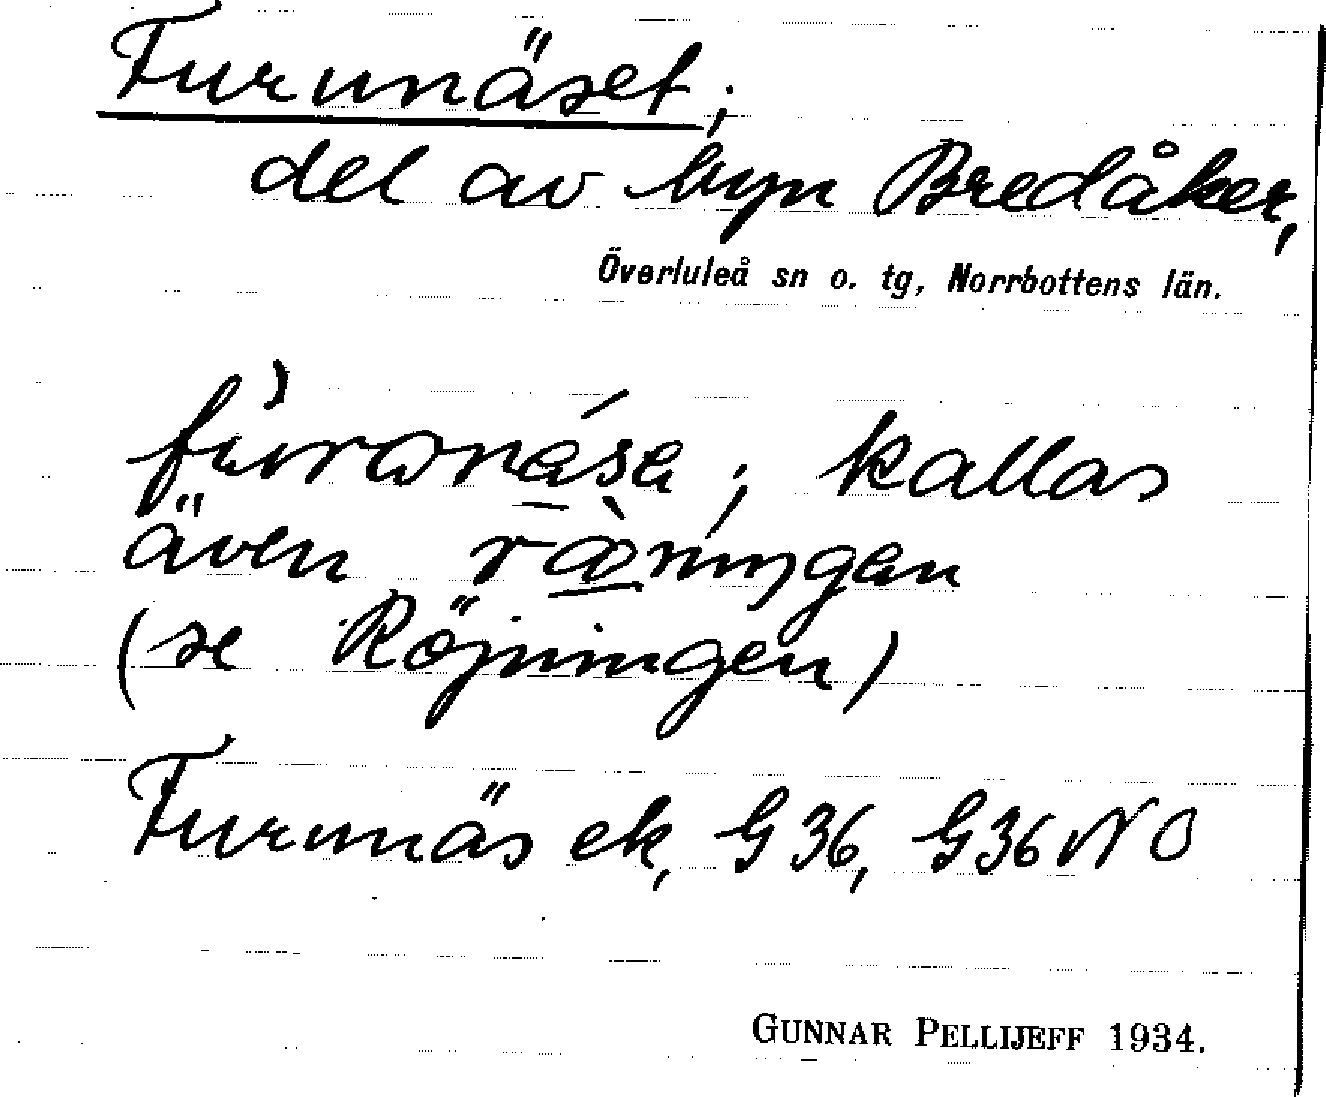 Furunäset;
del av byn Bredåker,
Överluleå sn o. tg, Norrbottens län.
kallas
även
(se Röjningen)
Furunäs ek, G 36, G 36 NO
GUNNAR PELLIJEFF 1934.